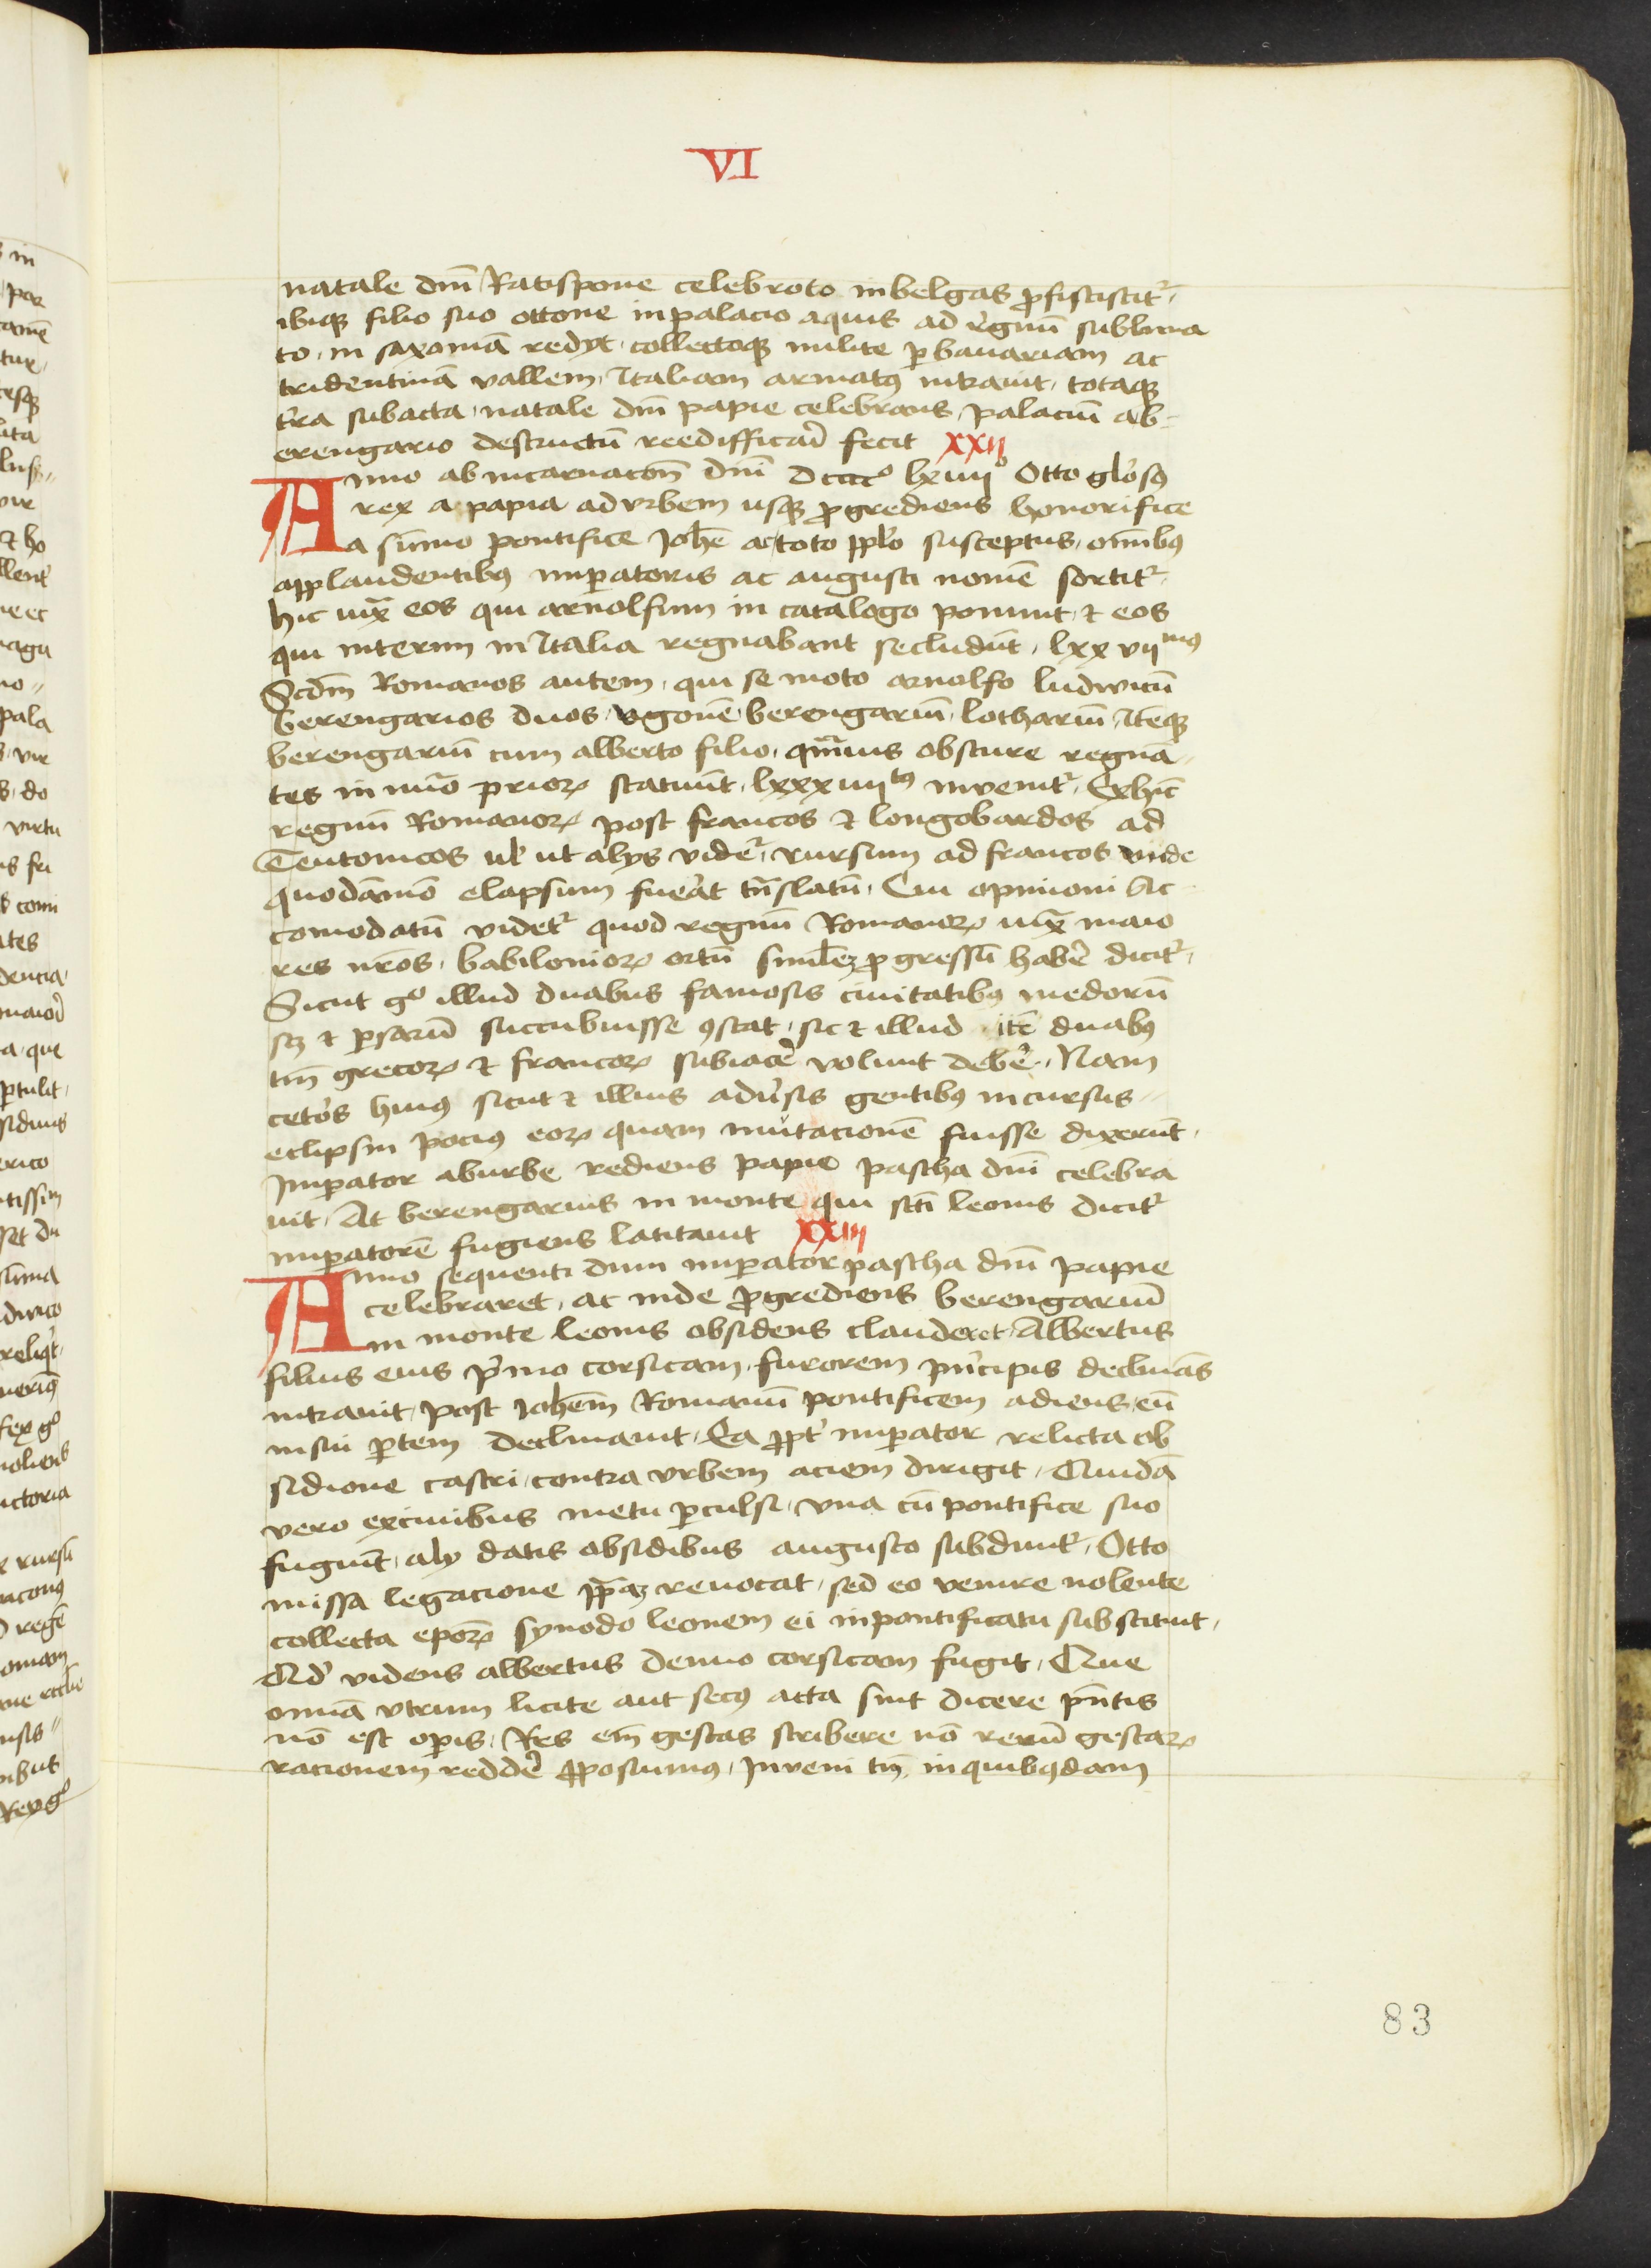 VI
natale dm̄ Ratispone celebrato in belgas ꝓfisciscit᷑,
ibiqꝫ filio suo ottone in palacio aquis ad regnū sublima
to, in saxoniā redyt, collectoqꝫ milite ꝑ bauariam ac
tridentinā vallem, Italiam armatꝰ intrauit, totaqꝫ
t̄ra subacta, natale dm̄ papie celebrans, palaciū ab
erengario destructū reedifficar̄ fecit XXII
Anno ab incarnacōn dnī Dcccc° lxiiii° Otto glōsꝰ
rex a papia ad vrbem usqꝫ ꝓgrediens honorifice
a sūmo pontifice Joh̄e ac toto pplo susceptus, omībꝰ
applaudentibꝰ imꝑatoris ac augusti nomē sortit᷑,
hic iux̄ eos qui arnolfum in catalogo ponunt, ⁊ eos
qui interim in Italia regnabant secludūt, lxx vii mꝰ
Scdm̄ Romanos autem, qui se moto arnolfo ludwicū
berengarios duos, vgonē, berengariū, lothariū, Itēqꝫ
berengariū cum alberto filio, qm̄uis obscure regnā
tes in nūo prioꝝ statuūt, lxxxiiii tꝰ inuenit᷑, Exhīc
regnū Romanoꝝ post francos ⁊ longobardos ad
Teutonicos ul̄ ut alys videt᷑, rursum ad francos vnde
quodāmō elapsum fuerat tn̄slatū, Cui opinioni Ac
comodatū videt᷑ quod regnū Romanoꝝ iux̄ maio
res nr̄os, babilonioꝝ ortū simileꝫ ꝓgressū haber̄ dicit᷑,
Sicut g° illud duabus famosis ciuitatibꝰ medorū
sꝫ ⁊ ꝑsarū succubuisse ꝯstat, sic ⁊ illud itē duabꝰ
tm̄ grecoꝝ ⁊ francoꝝ subiacer̄ volunt deber̄, Nam
ceteros huiꝰ sicut ⁊ illius aduersis gentibꝰ incursus
eclipsin pociꝰ eoꝝ quam mutacionē fuisse dixerūt,
Imꝑator ab urbe rediens papie pascha dnī celebra
uit, At berengarius in monte qui scti leonis dicit᷑
imꝑatorē fugiens latitauit XXIII
Anno sequenti dum imꝑator pascha dm̄ papie
celebraret, ac inde ꝓgrediens berengariū
in monte leonis obsidens clauderet, Albertus
filius eius pⁱmo corsicam, furorem pⁱncipis declinās
intrauit, post Joh̄em Romanū pontificem adiens, eū
in sui ꝑtem declinauit, Ea ꝓpt̄ imꝑator relicta ob
sidione castri, contra vrbem aciem dirigit, Quidā
vero ex ciuibus metu ꝑculsi, vna cū pontifice suo
fugiūt, aly datis obsidibus augusto subdunt᷑, Otto
missa legacione pp̄aꝫ reuocat, sed eo venire nolente
collecta epoꝝ synodo leonem ei in pontificatu substituit,
Qd̄ videns albertus denuo corsicam fugit, Que
omīa vtrum licite aut secꝰ acta sint dicere pn̄tis
nō est oꝑis, Res em̄ gestas scribere nō rerū gestaꝝ
racionem redder̄ ꝓposuimꝰ, Inueni tm̄ in quibꝰdam
83